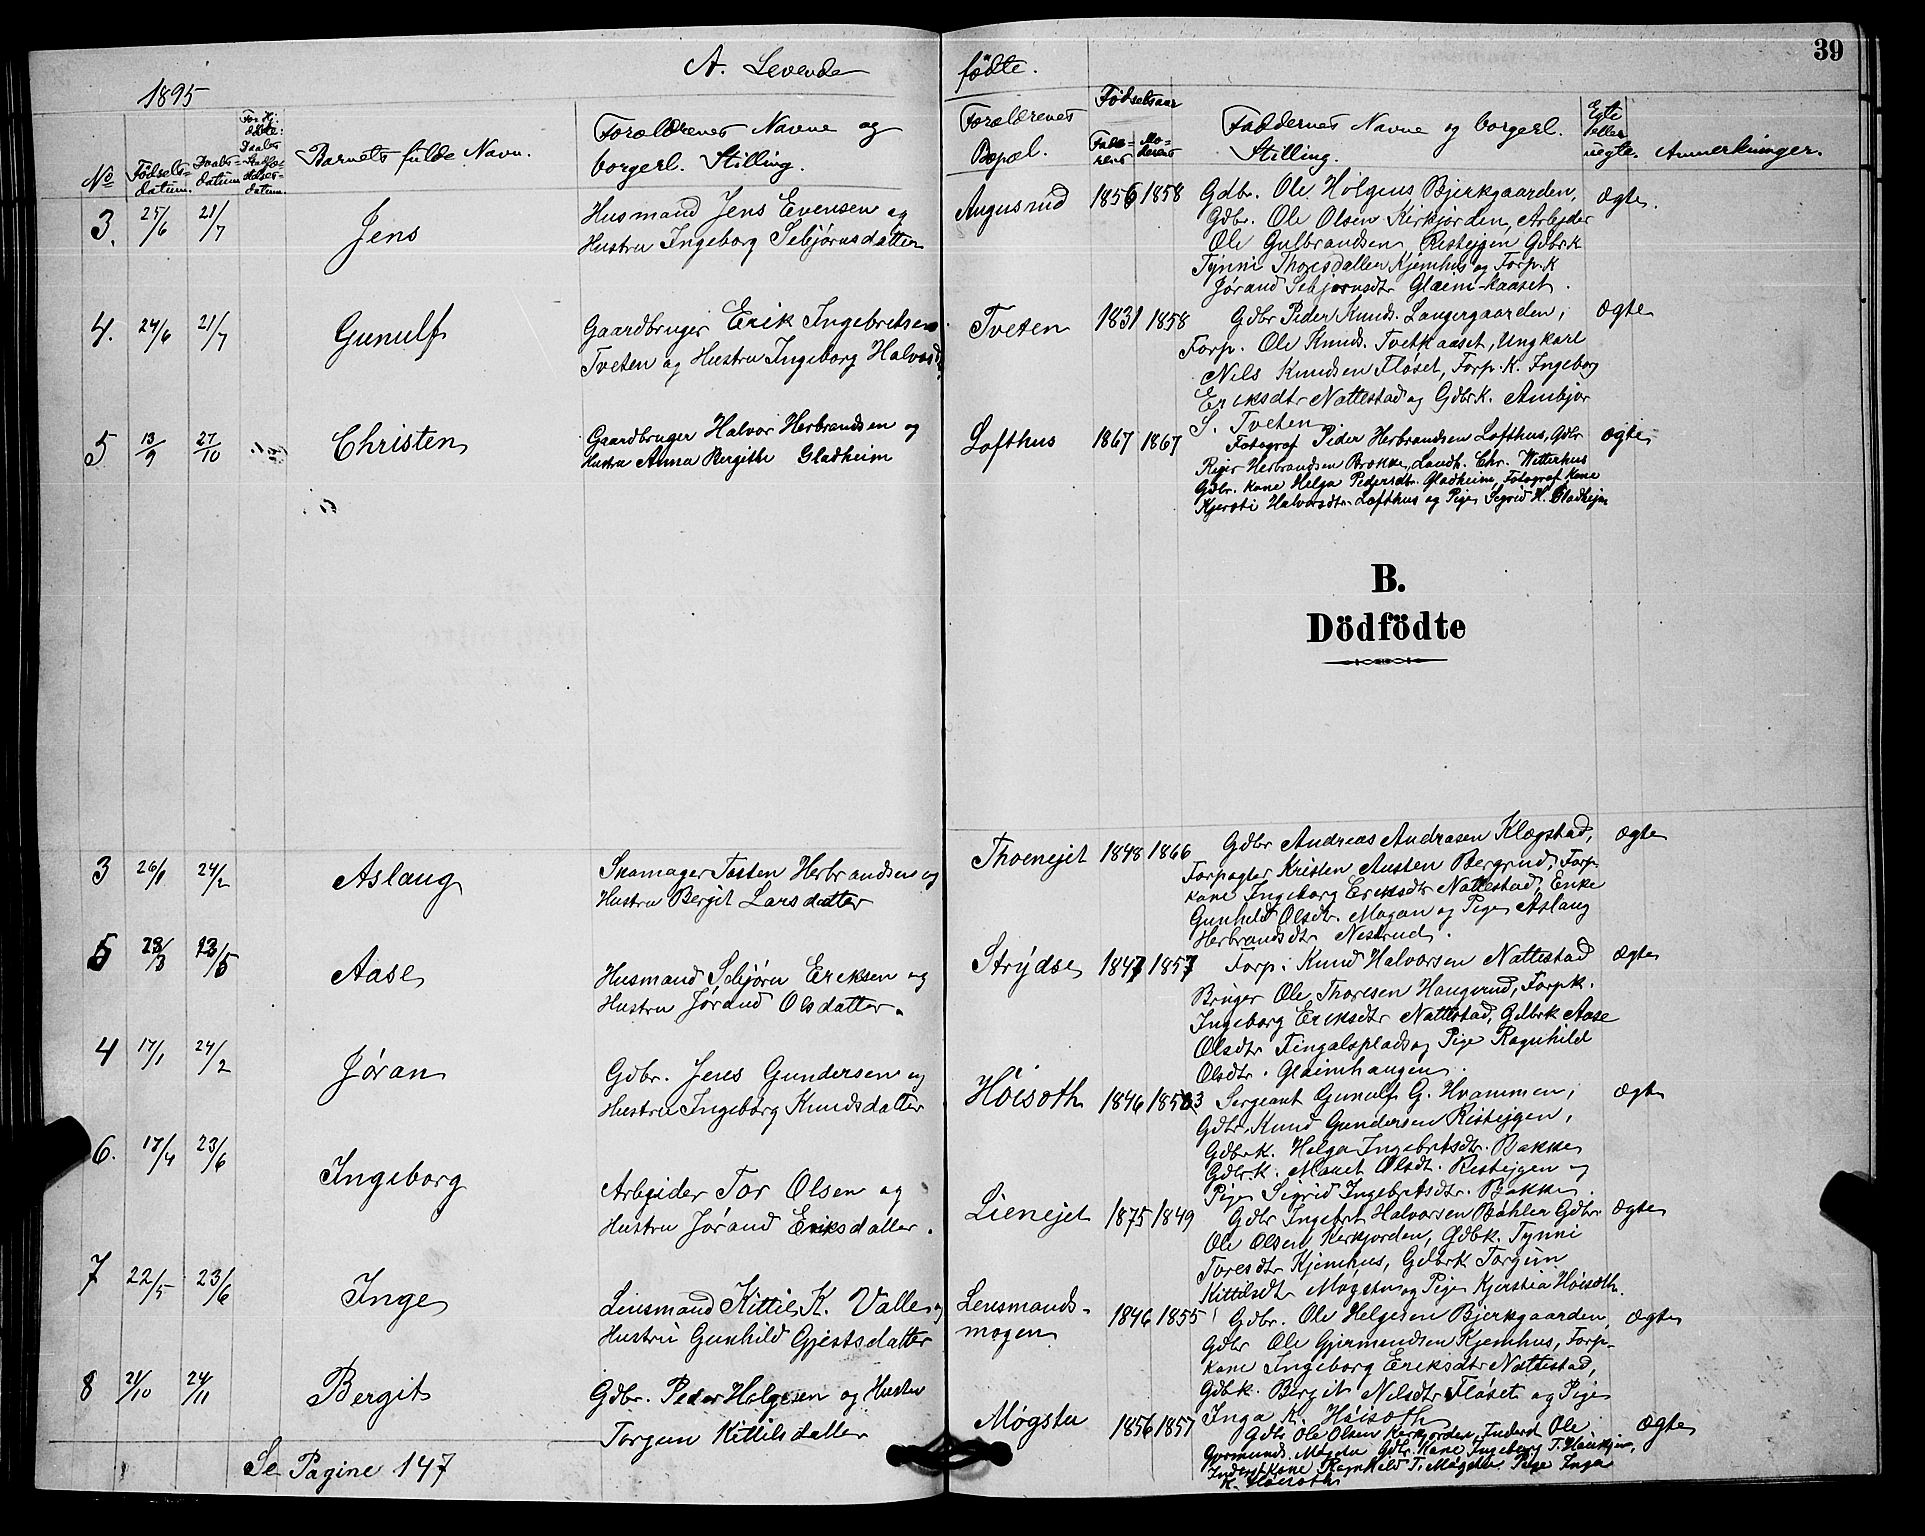 39
A. Levende fødte.
1895
No
Fødsels-datum.
Daabs-datum
Barnets fulde Navn.
Forældrenes Navne og borgerl. Stilling.
Forældrenes Bopæl.
Fødselsaar
Fade-rens
Mo-derens
Faddernes Navne og borgerl. Stilling.
Egte eller uegte.
Anmerkninger.
3. 25/6 21/7 Jens
Husmand Jens Evensen og
Hustru Ingeborg Sebjørnsdatter
Augusrud 1856 1858
Gdbr. Ole Hølgens Bjerkgaarden,
Gdbr. Ole Olsen Kirkjorden, Arbejder
Ole Gulbrandsen Ristejgen Gdbrk
Tynni Thoresdatter Kjemhus og Forp. k
Jørand Sebjørnsdtr Gleim-kaaset.
ægte.
4. 24/6 21/7 Gunulf
Gaardbruger Erik Ingebretsen
Tveten og Hustru Ingeborg Halvorsd.
Tveten 1831 1858
Gdbr Peder Knuds. Langergaarden,
Forp. Ole Knuds. Tvetkaaset, Ungkarl
Nils Knudsen Fløset, Forp. K. Ingeborg
Eriksdtr Nattestad og Gdbrk. Ambjør
S. Tveten
ægte
5 13/9 27/10 Christen
Gaardbruger Halvor Herbrandsen og
Hustru Anna Bergitte Gladheim
Lofthus 1867 1867
Fotograf Peder Herbrandsen Lofthus, Gdbr
Reier Herbrandsen Brokke, Landh. Chr. Witterhus
Gdbr. Kone Helga Pedersdtr. Gladheim, Fotograf Kone
Kjersti Halvorsdtr. Lofthus og Pige Sigrid H. Gladhejm
ægte
B.
Dödfödte
3 26/1 24/2 Aslaug
Skomager Tosten Herbrandsen og
Hustru Bergit Larsdatter
Thoenejet 1848 1866
Gdbr Andreas Andrasen Klægstad,
Forpagter Kristen Austen Bergrud, Forp-
kone Ingeborg Eriksdtr Nattestad, Enke
Gunhild Olsdtr. Mogan og Pige Aslaug
Herbrandsdtr Nestrud.
ægte
5 23/3 23/5 Aase
Husmand Sebjørn Eriksen og
Hustru Jørand Olsdatter.
Strydse 1847 1857
Forp. Knud Halvorsen Nattestad
Bruger Ole Thoresen Haugerud, Forpk.
Ingeborg Eriksdtr Nattestad, Gdbrk Aase
Olsdtr Fingalsplads og Pige Ragnhild
Olsdtr. Gleimhaugen.
ægte
4 17/1 24/2 Jøran
Gdbr. Jens Gundersen og
Hustru Ingeborg Knudsdatter
Høisoth 1846 1853
Sergeant Gunulf G. Hvammen,
Gdbr. Knud Gundersen Ristejgen,
Gdbrk. Helga Ingebretsdtr. Bakke
Gdbrk. Maret Olsdt. Ristejgen og
Pige Sigrid Ingebretsdtr. Bakke.
ægte
6. 17/4 23/6 Ingeborg
Arbejder Tor Olsen og
Hustru Jørand Eriksdatter.
Lienejet 1875 1849
Gdbr Ingebret Halvorsen Bøhler Gdbr
Ole Olsen Kerkjorden, Gdbk. Tynni
Toresdtr Kjemhus, Gdbrk Torgun
Kittilsdt Møgstu og Pige Kjerstia Høisoth.
ægte
7 22/5 23/6 Inge
Lensmand Kittil K. Valle og
Hustru Gunhild Gjestsdatter
Lensmands-
mogen 1846 1855
Gdbr. Ole Helgesen Bjerkgaarden
Gdbr Ole Gjermundsen Kjemhus, Forp-
kone Ingeborg Eriksdtr Nattestad,
Gdbk. Bergit Nilsdtr Fløset og Pige
Inga K. Høisoth
ægte
8 21/10 24/11 Bergit
Gdbr. Peder Helgesen og Hustru
Torgun Kittilsdatter
Møgstu 1856 1857
Gdbr Ole Olsen Kerkjorden, Inderst Ole
Gjermunds. Møgstu Gdbr. Kone Ingeborg T.
Inderst Kone Ragnhild T. Møgstu. Pige Inga
K. Høisoth
ægte
Se Pagine 147